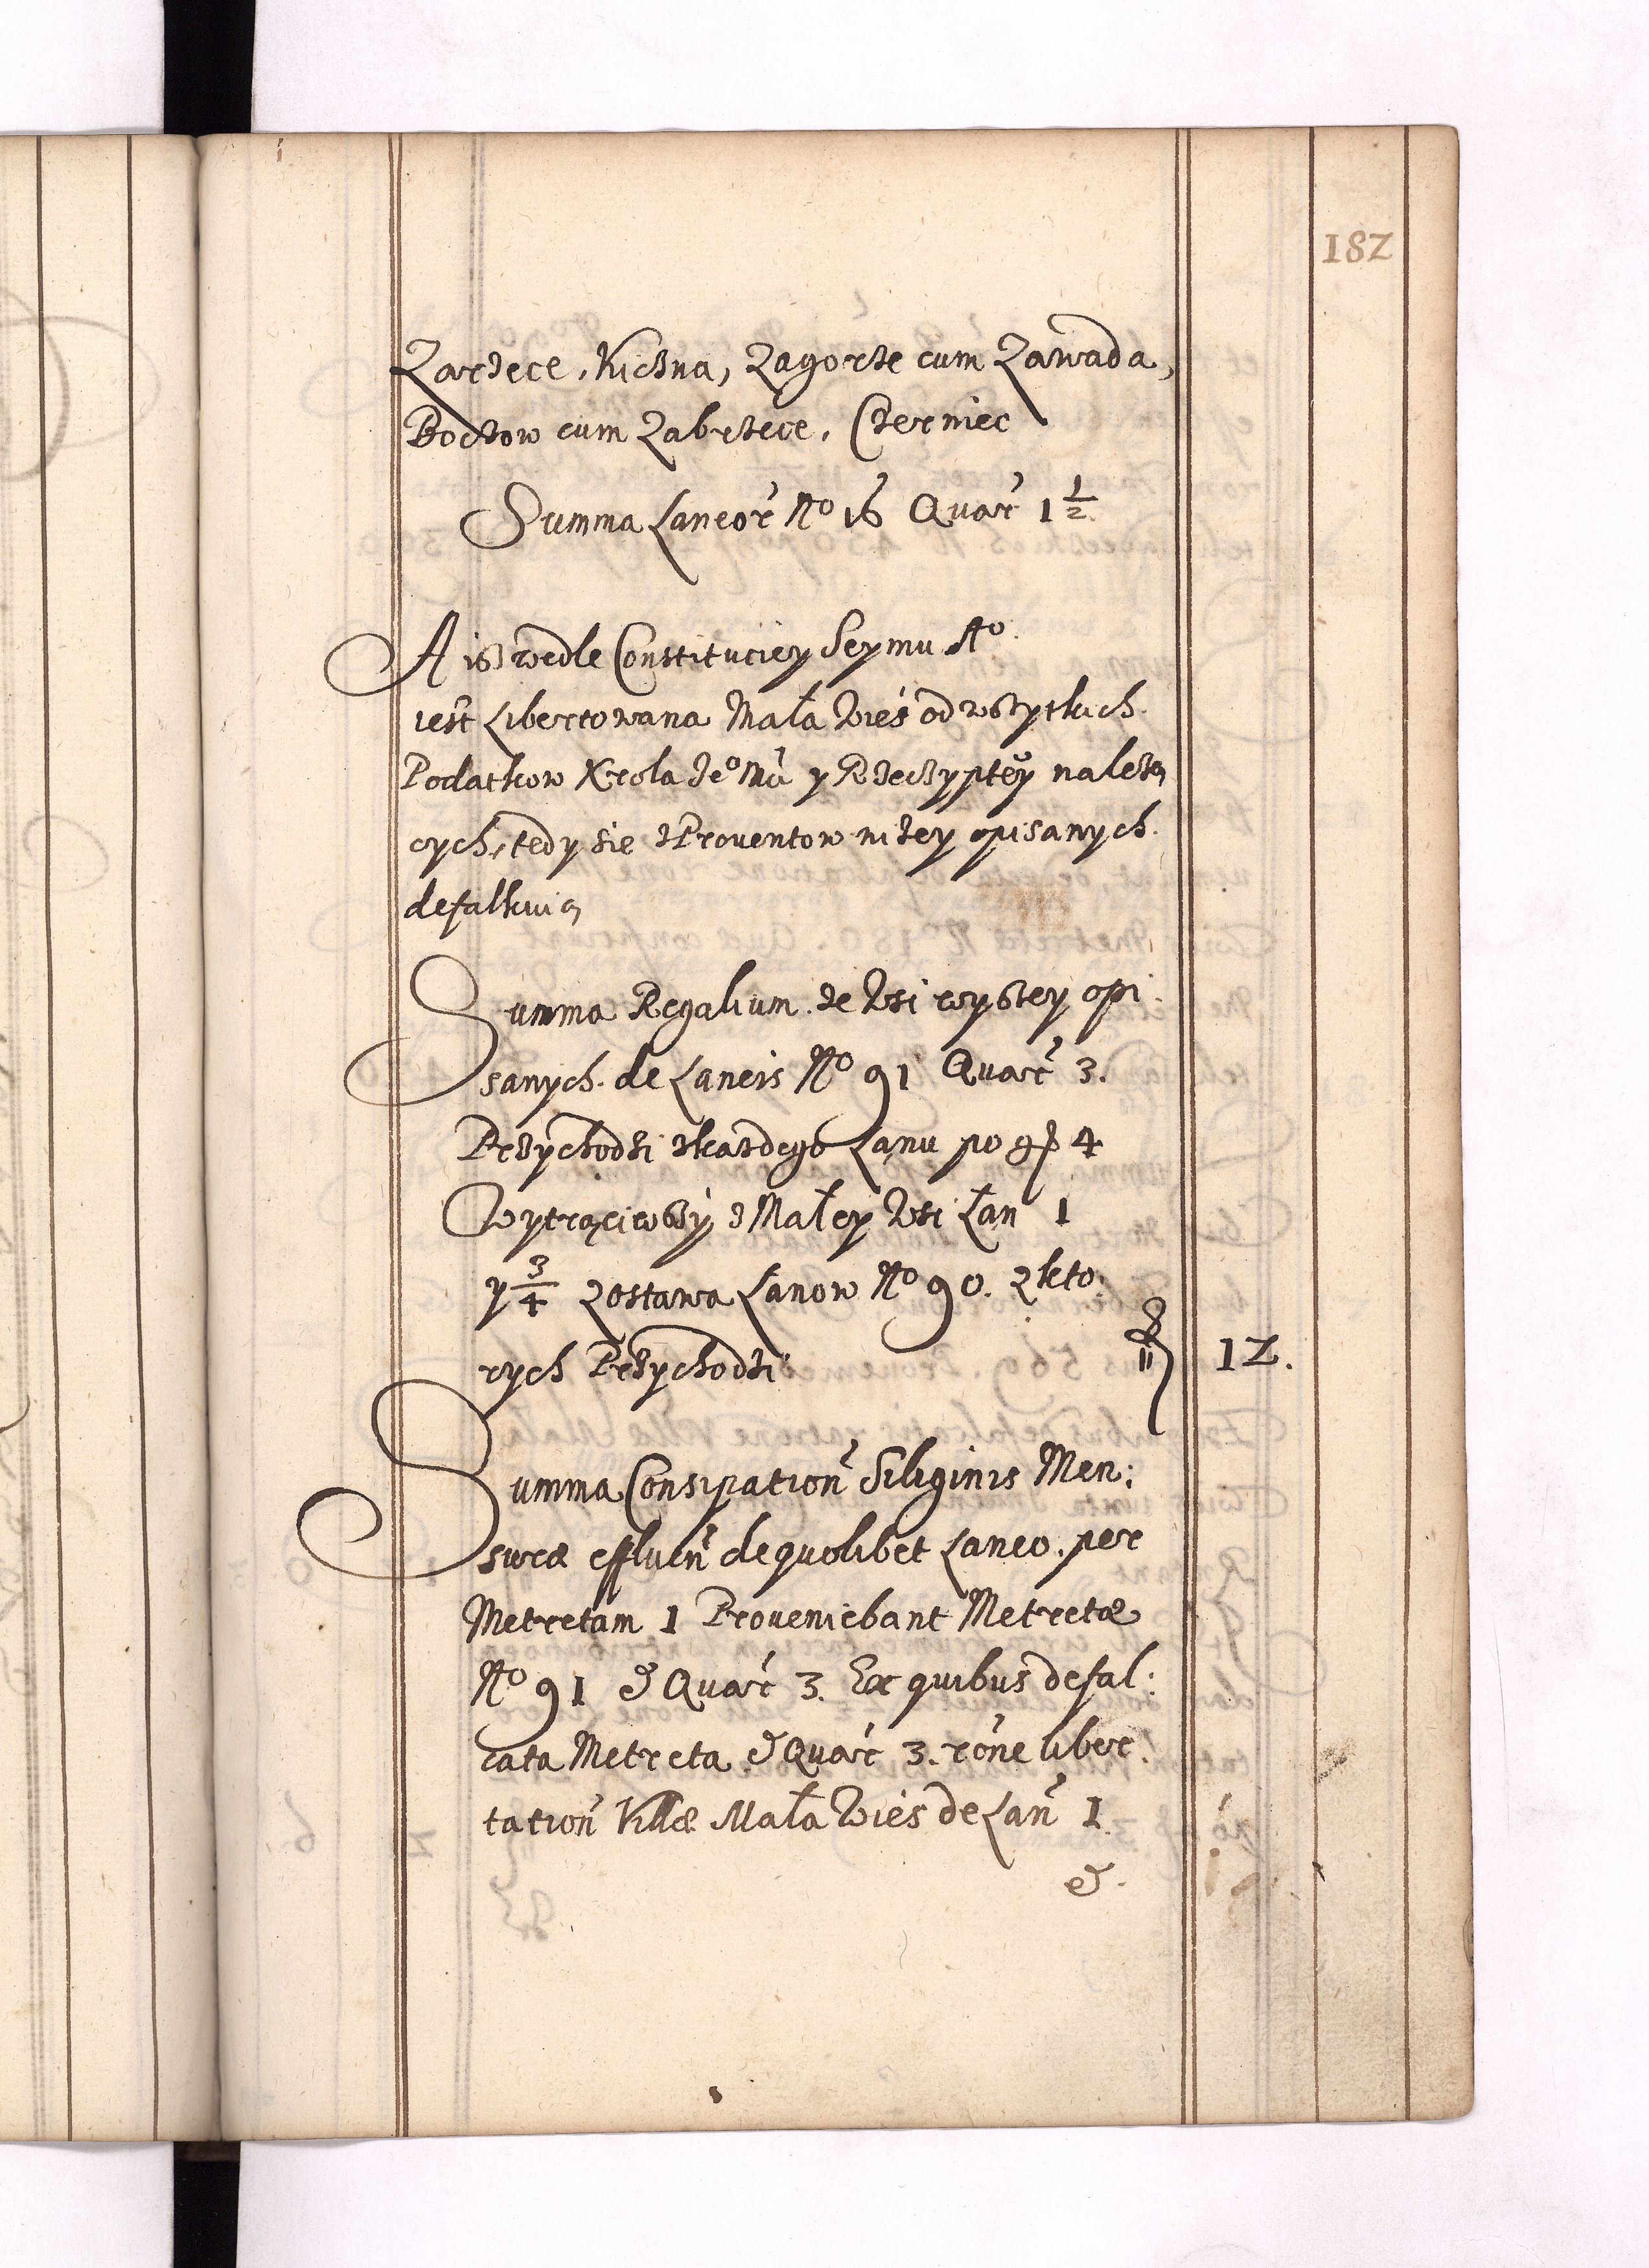 182
Zarzece, Kiczna, Zagorze cum Zawada,
Boczow cum Zabrzece, Czerniec
Summa Laneor̃ No 16 Quar̃ 1 1/2.
A iż wedle Constituciey Seymu Ao
iest Libertowana Mała Wieś od wszytkich
Podatkow Krola Jeo Mci y Rzeczyptey należą
cych, tedy sie z Prouentow niżey opisanych
defalkuią
Summa Regalium ze Wsi wyszey opi:
sanych de Laneis No 91 Quar̃ 3.
Przychodzi zkazdego Lanu po gr 4
Wytrąciwszy z Małey Wsi Łan 1
y 3/4 zostawa Lanow No 90. zkto:
rych Przychodzi fl 12.
Summa Consipation̄ Siliginis Men:
suræ effluen̄ de quolibet Laneo per
Metretam 1 Proueniebant Metretæ
No 91 & Quar̃ 3. Ex quibus defal:
cata Metreta & Quar̃ 3. rōne liber:
tation̄ Villæ Mała Wieś de Lan̄ 1.
&.